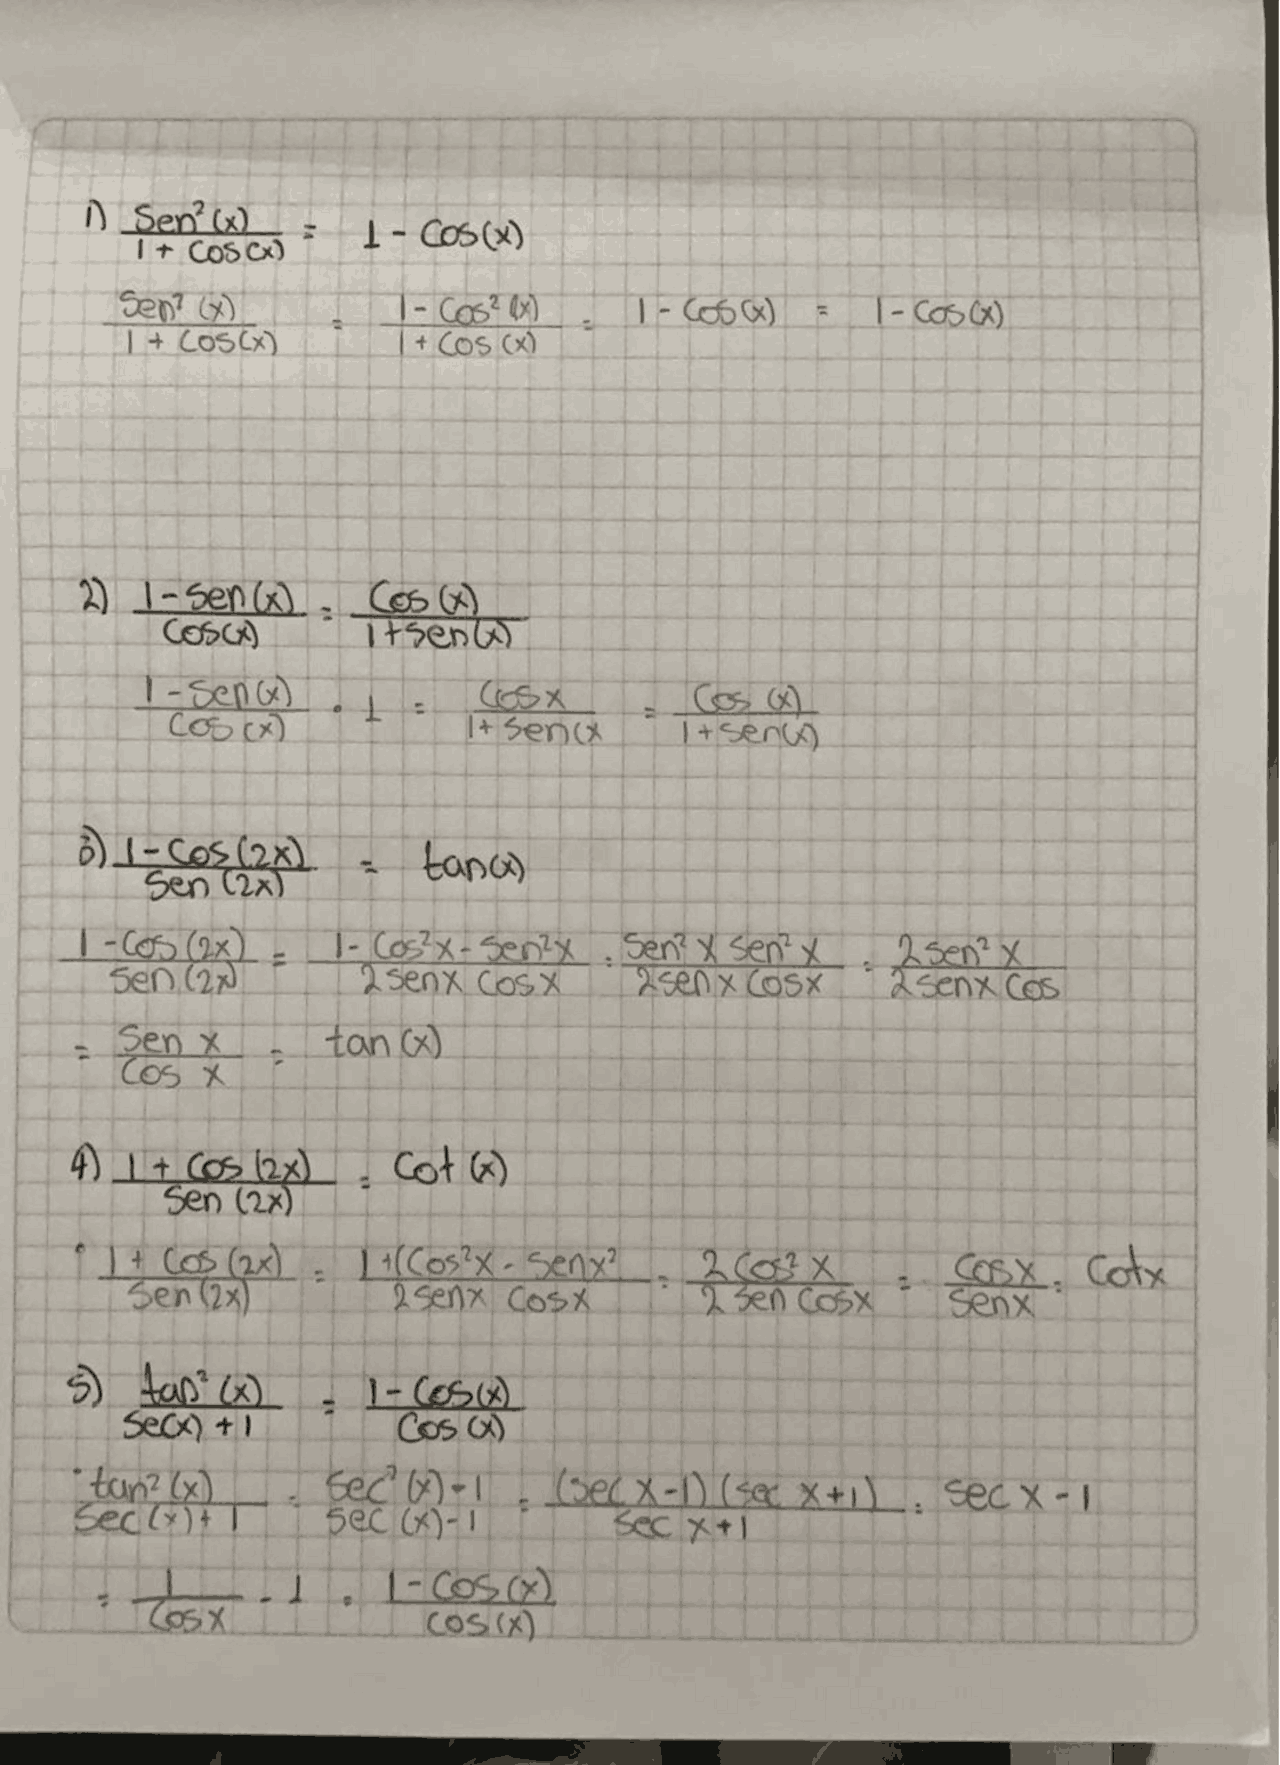 1) Sen²(x) / 1 + Cos(x) = 1 - Cos(x)
Sen²(x) / 1 + Cos(x) = 1 - Cos²(x) / 1 + Cos(x) = 1 - Cos(x) = 1 - Cos(x)
2) 1 - Sen(x) / Cos(x) = Cos(x) / 1 + Sen(x)
1 - Sen(x) / Cos(x) · 1 = Cos x / 1 + Sen(x = Cos(x) / 1 + Sen(x)
3) 1 - Cos(2x) / Sen(2x) = tan(x)
1 - Cos(2x) / Sen(2x) = 1 - Cos²x - Sen²x / 2 Senx Cosx = Sen²x Sen²x / 2 Senx Cosx = 2 Sen²x / 2 Senx Cos
= Sen x / Cos x = tan(x)
4) 1 + Cos(2x) / Sen(2x) = Cot(x)
• 1 + Cos(2x) / Sen(2x) = 1 + (Cos²x - Senx² / 2 Senx Cosx = 2 Cos²x / 2 Sen Cosx = Cosx / Senx = Cotx
5) tan²(x) / Sec(x) + 1 = 1 - Cos(x) / Cos(x)
• tan²(x) / Sec(x) + 1 = Sec²(x) - 1 / Sec(x) - 1 = (Sec x - 1)(Sec x + 1) / Sec x + 1 = Sec x - 1
= 1 / Cosx - 1 = 1 - Cos(x) / Cos(x)